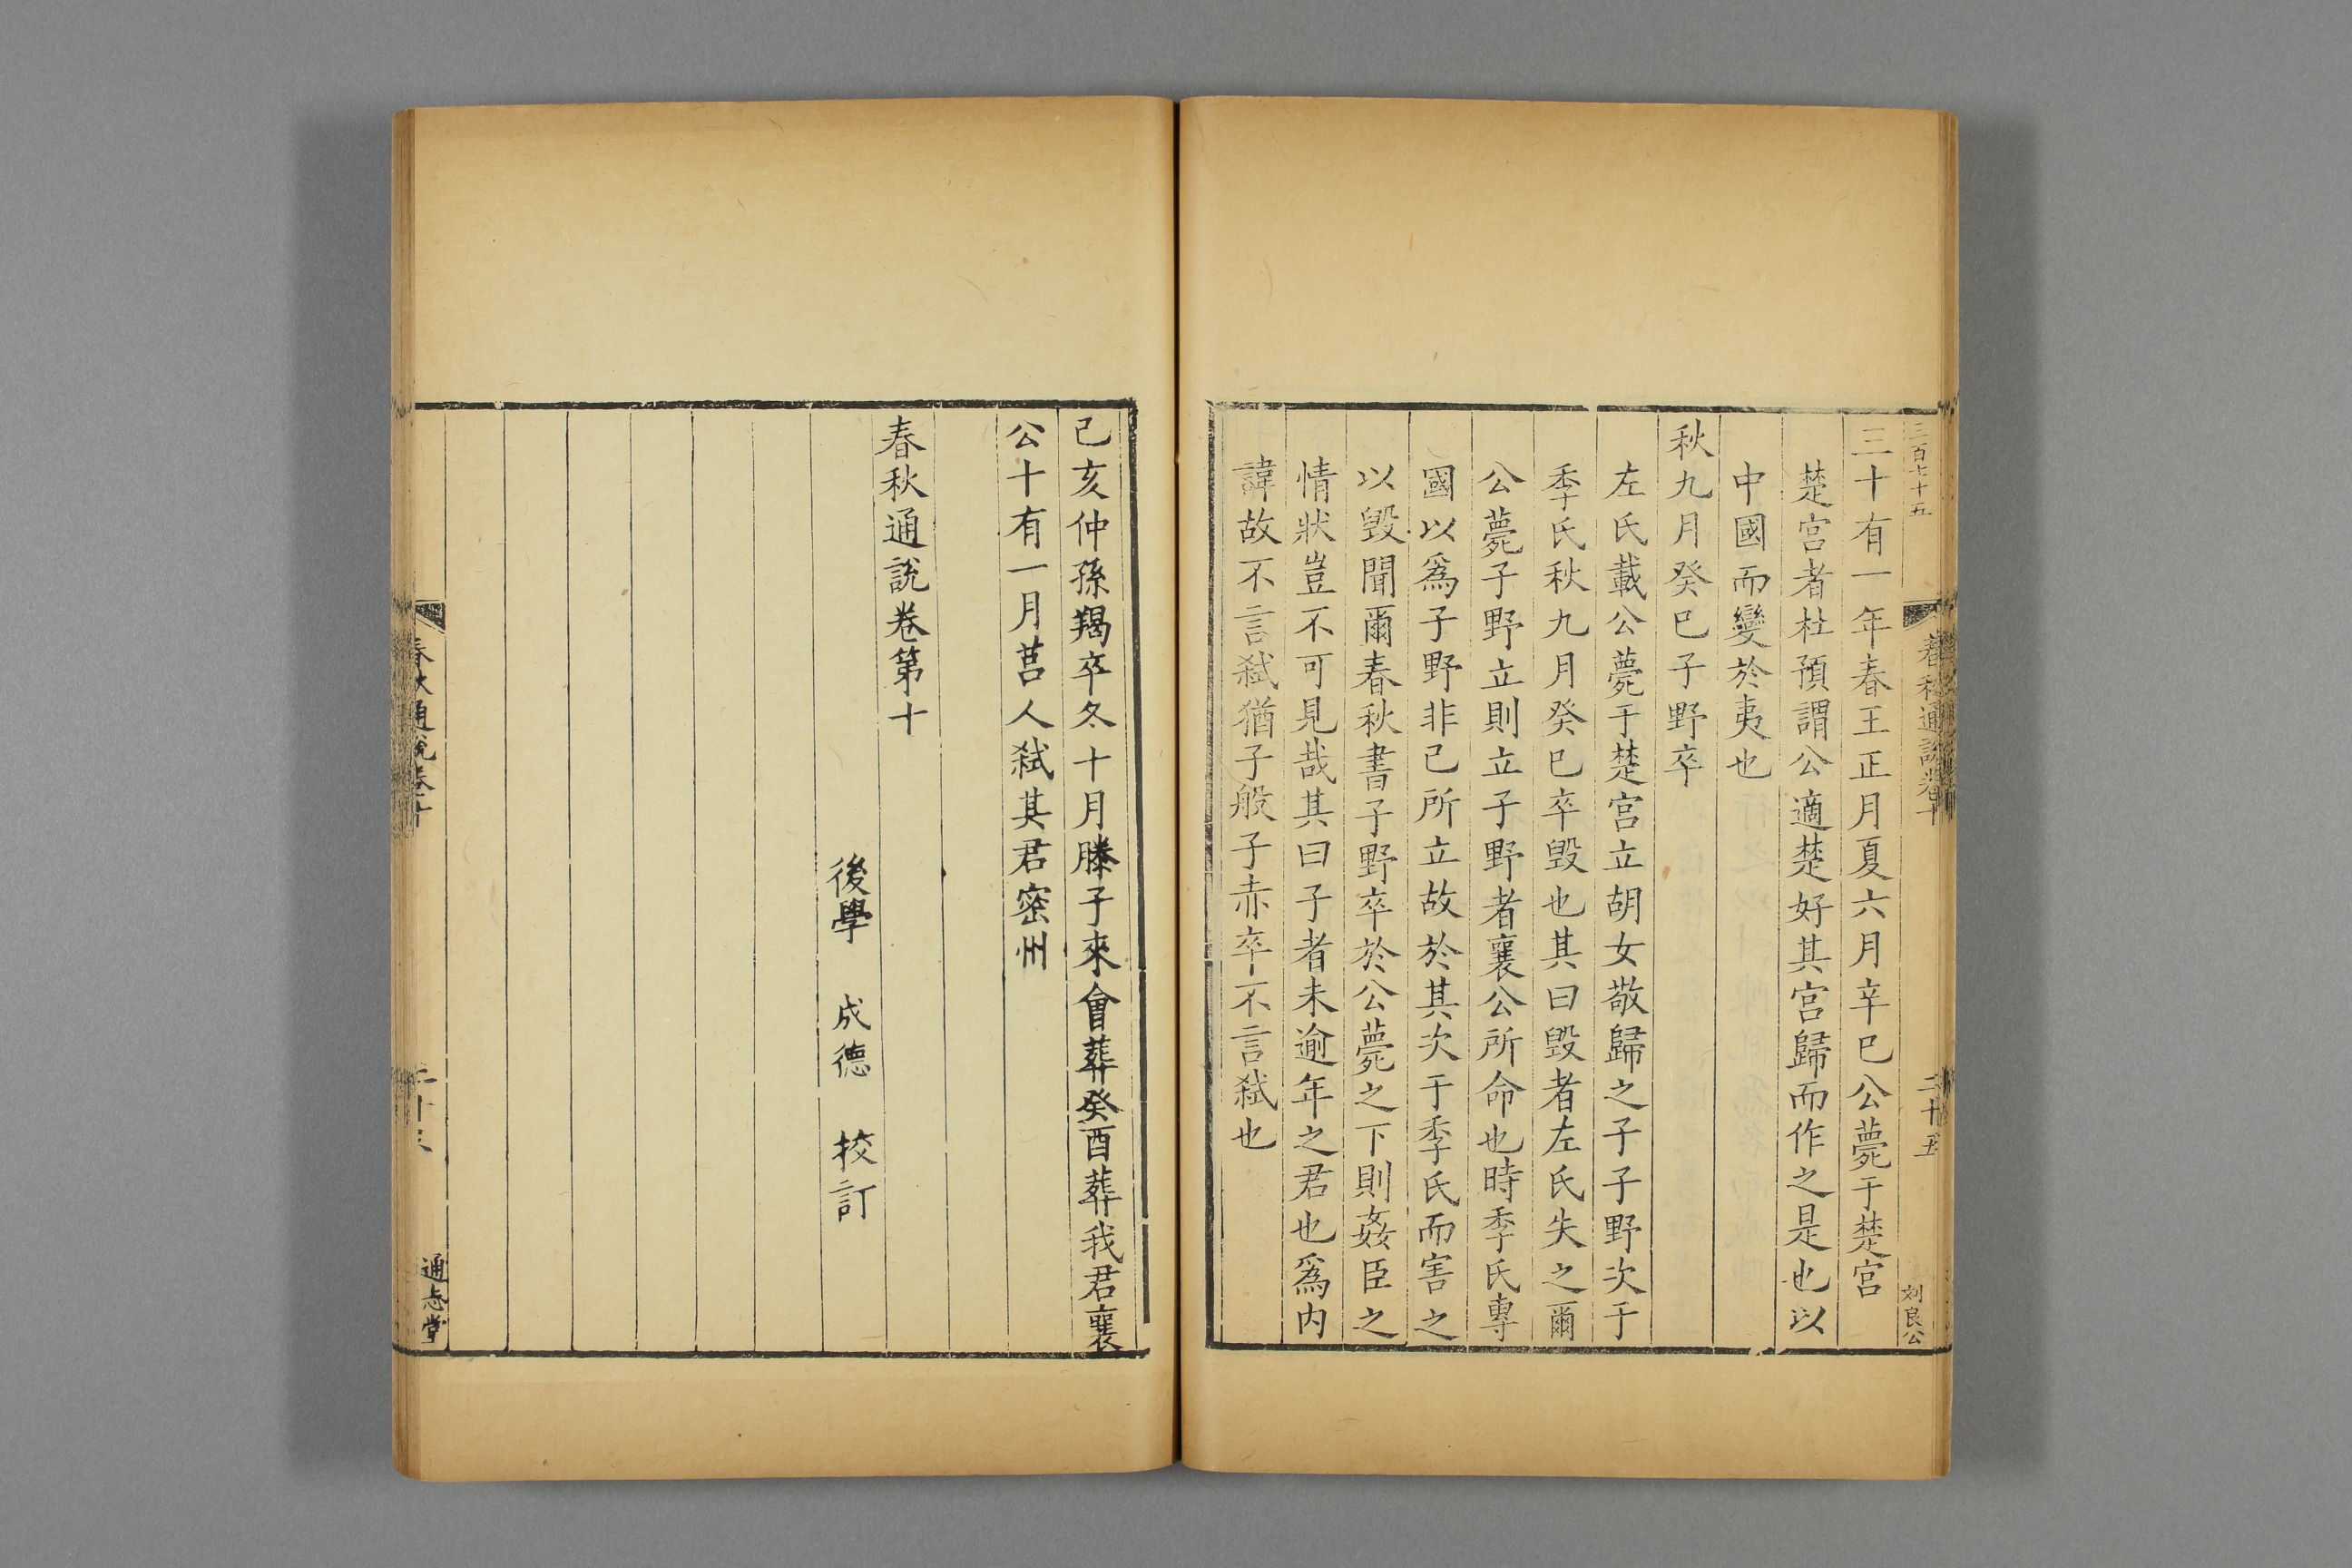 三百七十五
春秋通說卷十
二十五
刘良公
三十有一年春王正月夏六月辛巳公薨于楚宮
楚宮者杜預謂公適楚好其宮歸而作之是也以
中國而變於夷也
秋九月癸巳子野卒
左氏載公薨于楚宮立胡女敬歸之子子野次于
季氏秋九月癸巳卒毀也其曰毀者左氏失之爾
公薨子野立則立子野者襄公所命也時季氏專
國以爲子野非己所立故於其次于季氏而害之
以毀聞爾春秋書子野卒於公薨之下則姦臣之
情狀豈不可見哉其曰子者未逾年之君也爲內
諱故不言弒猶子般子赤卒不言弒也
己亥仲孫羯卒冬十月滕子來會葬癸酉葬我君襄
公十有一月莒人弒其君密州
春秋通說卷第十
後學 成德 校訂
春秋通說卷十
通志堂